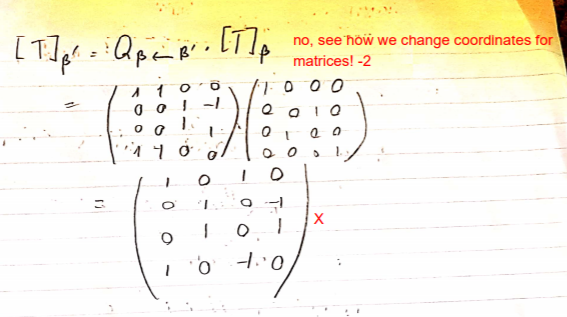 [T]β' = Qβ←β' · [T]β
no, see how we change coordinates for
matrices! -2
= ( 1 1 0 0 ) · ( 1 0 0 0 )
( 0 0 1 -1 ) ( 0 0 1 0 )
( 0 0 1 1 ) ( 0 1 0 0 )
( 1 -1 0 0 ) ( 0 0 0 1 )
= ( 1 0 1 0 )
( 0 1 0 -1 )
( 0 1 0 1 ) X
( 1 0 -1 0 )